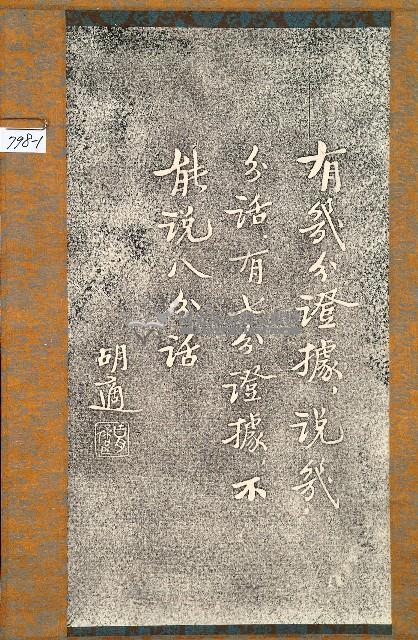 有幾分證據，說幾
分話．有七分證據，不
能說八分話
胡適
798-1